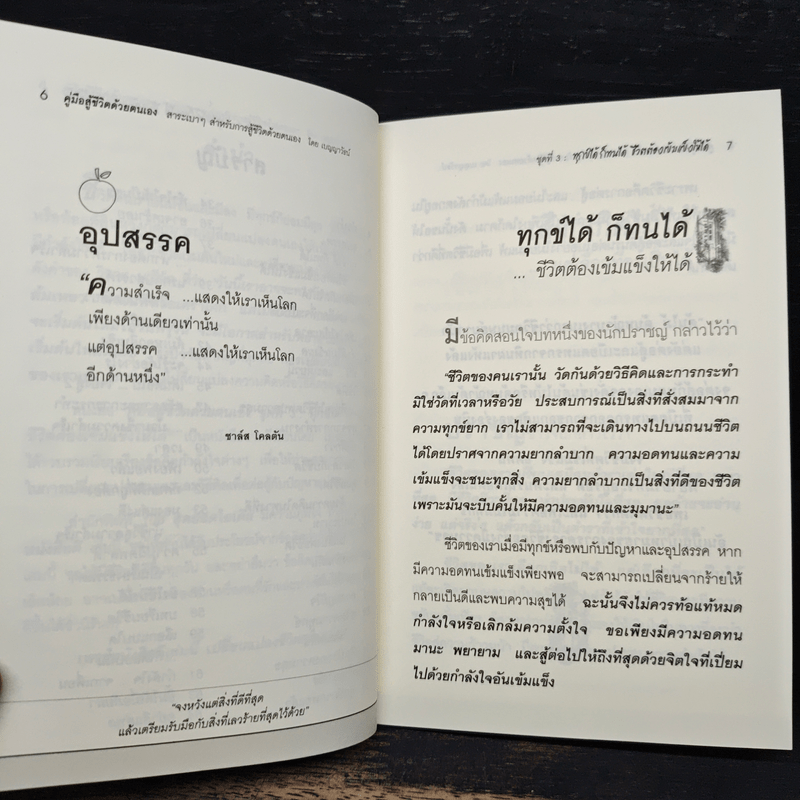 6 คู่มือสู้ชีวิตด้วยตนเอง สาระเบาๆ สำหรับการสู้ชีวิตด้วยตนเอง โดย เบญญาวัธน์
อุปสรรค
“ความสำเร็จ ...แสดงให้เราเห็นโลก
เพียงด้านเดียวเท่านั้น
แต่อุปสรรค ...แสดงให้เราเห็นโลก
อีกด้านหนึ่ง”
ชาล์ส โคลตัน
“จงหวังแต่สิ่งที่ดีที่สุด
แล้วเตรียมรับมือกับสิ่งที่เลวร้ายที่สุดไว้ด้วย”
ชุดที่ 3 : ทุกข์ได้ ก็ทนได้ ชีวิตต้องเข้มแข็งให้ได้ 7
ทุกข์ได้ ก็ทนได้
... ชีวิตต้องเข้มแข็งให้ได้
มีข้อคิดสอนใจบทหนึ่งของนักปราชญ์ กล่าวไว้ว่า
“ชีวิตของคนเรานั้น วัดกันด้วยวิธีคิดและการกระทำ
มิใช่วัดที่เวลาหรือวัย ประสบการณ์เป็นสิ่งที่สั่งสมมาจาก
ความทุกข์ยาก เราไม่สามารถที่จะเดินทางไปบนถนนชีวิต
ได้โดยปราศจากความยากลำบาก ความอดทนและความ
เข้มแข็งจะชนะทุกสิ่ง ความยากลำบากเป็นสิ่งที่ดีของชีวิต
เพราะมันจะบีบคั้นให้มีความอดทนและมุมานะ”
ชีวิตของเราเมื่อมีทุกข์หรือพบกับปัญหาและอุปสรรค หาก
มีความอดทนเข้มแข็งเพียงพอ จะสามารถเปลี่ยนจากร้ายให้
กลายเป็นดีและพบความสุขได้ ฉะนั้นจึงไม่ควรท้อแท้หมด
กำลังใจหรือเลิกล้มความตั้งใจ ขอเพียงมีความอดทน
มานะ พยายาม และสู้ต่อไปให้ถึงที่สุดด้วยจิตใจที่เปี่ยม
ไปด้วยกำลังใจอันเข้มแข็ง